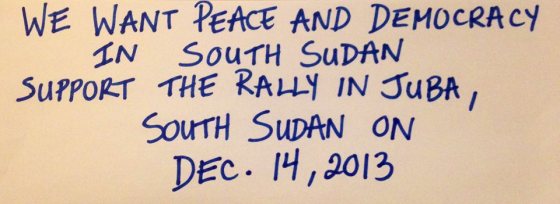 WE WANT PEACE AND DEMOCRACY
IN SOUTH SUDAN
SUPPORT THE RALLY IN JUBA,
SOUTH SUDAN ON
DEC. 14, 2013